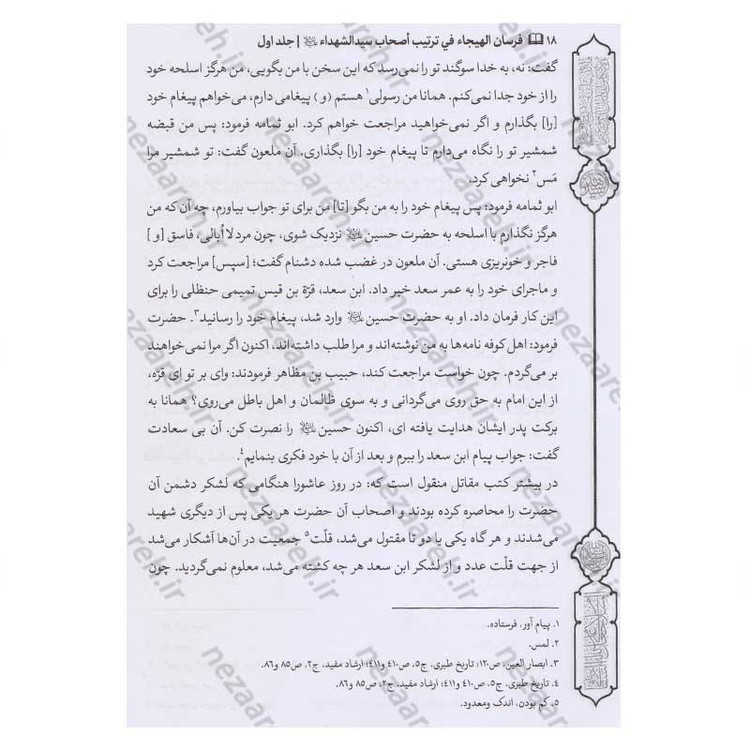 ۱۸ فرسان الهیجاء في ترتیب أصحاب سیدالشهداء | جلد اول
گفت: نه، به خدا سوگند تو را نمی‌رسد که این سخن با من بگویی، من هرگز اسلحه خود
را از خود جدا نمی‌کنم. همانا من رسولی۱ هستم (و) پیغامی دارم، می‌خواهم پیغام خود
[را] بگذارم و اگر نمی‌خواهید مراجعت خواهم کرد. ابو ثمامه فرمود: پس من قبضه
شمشیر تو را نگاه می‌دارم تا پیغام خود [را] بگذاری. آن ملعون گفت: تو شمشیر مرا
مَس۲ نخواهی کرد.
ابو ثمامه فرمود: پس پیغام خود را به من بگو [تا] من برای تو جواب بیاورم، چه آن که من
هرگز نگذارم با اسلحه به حضرت حسین نزدیک شوی، چون مرد لا اُبالی، فاسق [و]
فاجر و خونریزی هستی. آن ملعون در غضب شده دشنام گفت؛ [سپس] مراجعت کرد
و ماجرای خود را به عمر سعد خبر داد. ابن سعد، قرّة بن قیس تمیمی حنظلی را برای
این کار فرمان داد. او به حضرت حسین وارد شد، پیغام خود را رسانید۳. حضرت
فرمود: اهل کوفه نامه‌ها به من نوشته‌اند و مرا طلب داشته‌اند، اکنون اگر مرا نمی‌خواهند
بر می‌گردم. چون خواست مراجعت کند، حبیب بن مظاهر فرمودند: وای بر تو ای قرّه،
از این امام به حق روی می‌گردانی و به سوی ظالمان و اهل باطل می‌روی؟ همانا به
برکت پدر ایشان هدایت یافته ای، اکنون حسین را نصرت کن. آن بی سعادت
گفت: جواب پیام ابن سعد را ببرم و بعد از آن با خود فکری بنمایم۴.
در بیشتر کتب مقاتل منقول است که: در روز عاشورا هنگامی که لشکر دشمن آن
حضرت را محاصره کرده بودند و اصحاب آن حضرت هر یکی پس از دیگری شهید
می‌شدند و هر گاه یکی یا دو تا مقتول می‌شد، قلّت۵ جمعیت در آن‌ها آشکار می‌شد
و از جهت قلّت عدد و از لشکر ابن سعد هر چه کشته می‌شد، معلوم نمی‌گردید. چون
۱. پیام آور، فرستاده.
۲. لمس.
۳. ابصار العین، ص۱۲۰؛ تاریخ طبری، ج۵، ص۴۱۰ و۴۱۱؛ ارشاد مفید، ج۲، ص۸۵ و۸۶.
۴. تاریخ طبری، ج۵، ص۴۱۰ و۴۱۱؛ ارشاد مفید، ج۲، ص۸۵ و۸۶.
۵. کم بودن، اندک ومعدود.
nezaareh.ir